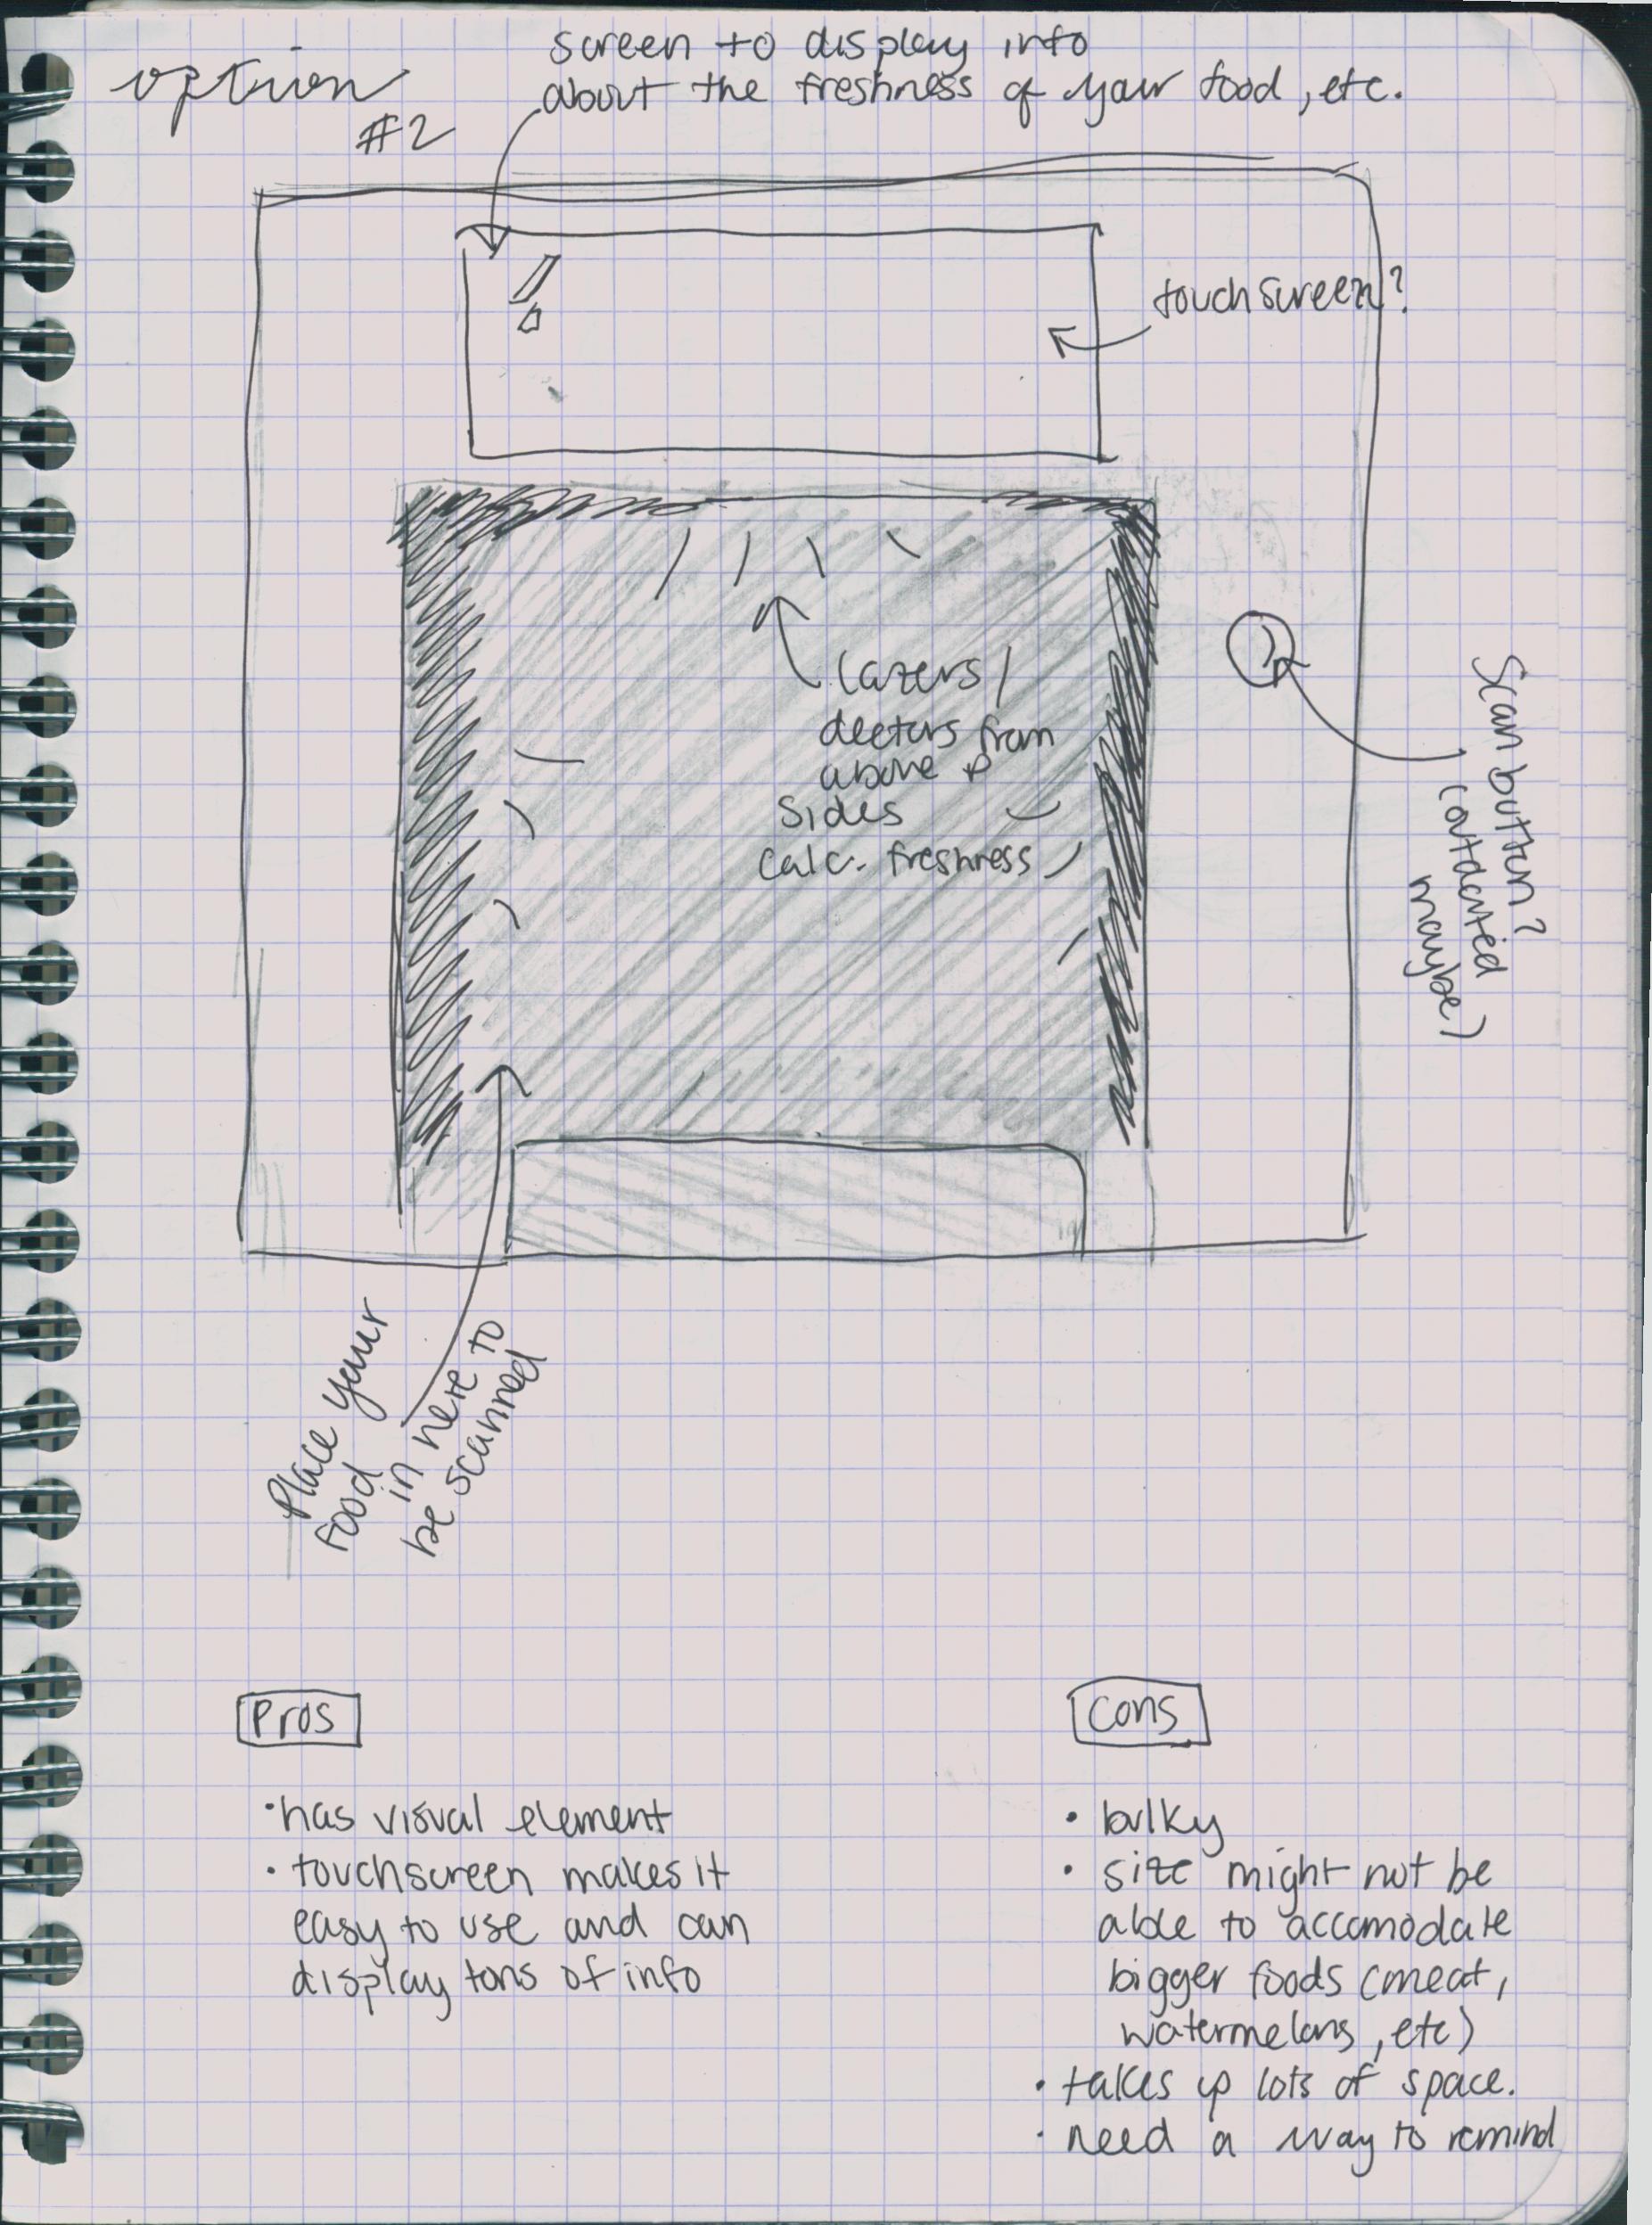 option
#2
screen to display info
about the freshness of your food, etc.
touchscreen?
lazers/
deectors from
above &
sides
calc. freshness
Scan button?
(outdated
maybe)
Place your
food
in here to
be scanned
Pros
• has visual element
• touchscreen makes it
easy to use and can
display tons of info
Cons
• bulky
• size might not be
able to accomodate
bigger foods (meat,
watermelons, etc)
• takes up lots of space.
• need a way to remind